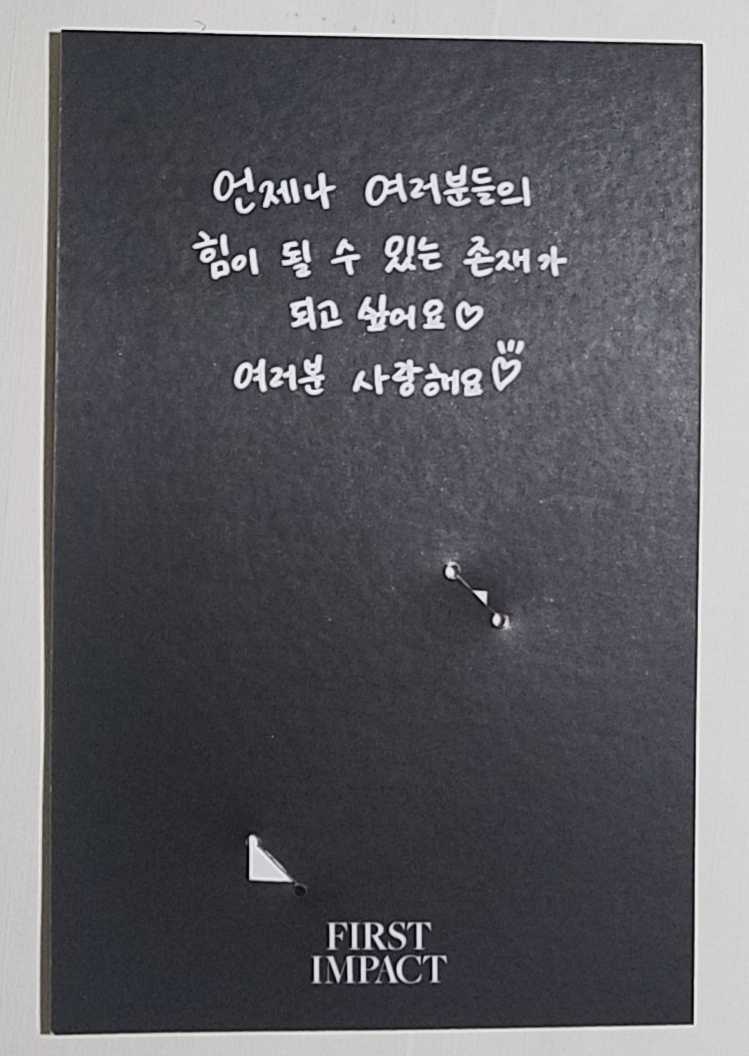 언제나 여러분들의
힘이 될 수 있는 존재가
되고 싶어요♡
여러분 사랑해요♡
FIRST
IMPACT